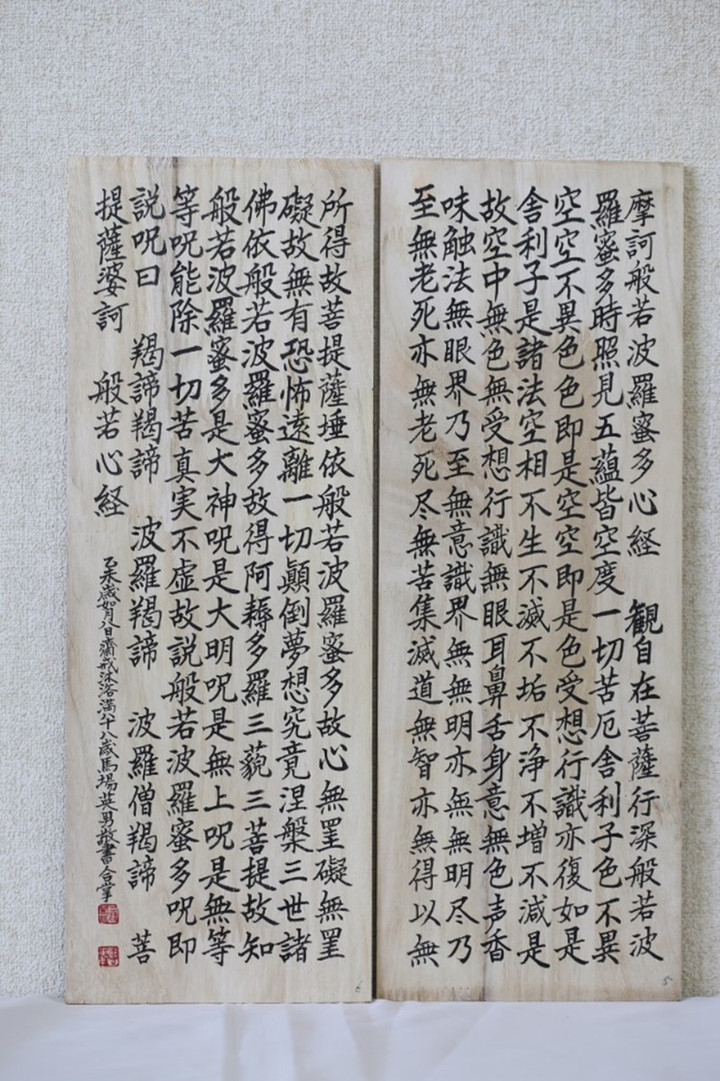 摩訶般若波羅蜜多心経 観自在菩薩行深般若波
羅蜜多時照見五蘊皆空度一切苦厄舎利子色不異
空空不異色色即是空空即是色受想行識亦復如是
舎利子是諸法空相不生不滅不垢不浄不増不減是
故空中無色無受想行識無眼耳鼻舌身意無色声香
味触法無眼界乃至無意識界無無明亦無無明尽乃
至無老死亦無老死尽無苦集滅道無智亦無得以無
5
所得故菩提薩埵依般若波羅蜜多故心無罣礙無罣
礙故無有恐怖遠離一切顛倒夢想究竟涅槃三世諸
佛依般若波羅蜜多故得阿耨多羅三藐三菩提故知
般若波羅蜜多是大神呪是大明呪是無上呪是無等
等呪能除一切苦真実不虚故説般若波羅蜜多呪即
説呪曰 羯諦羯諦 波羅羯諦 波羅僧羯諦 菩
提薩婆訶 般若心経
乙未歳如月八日齋戒沐浴満八十八歳馬場英男敬書合掌
6